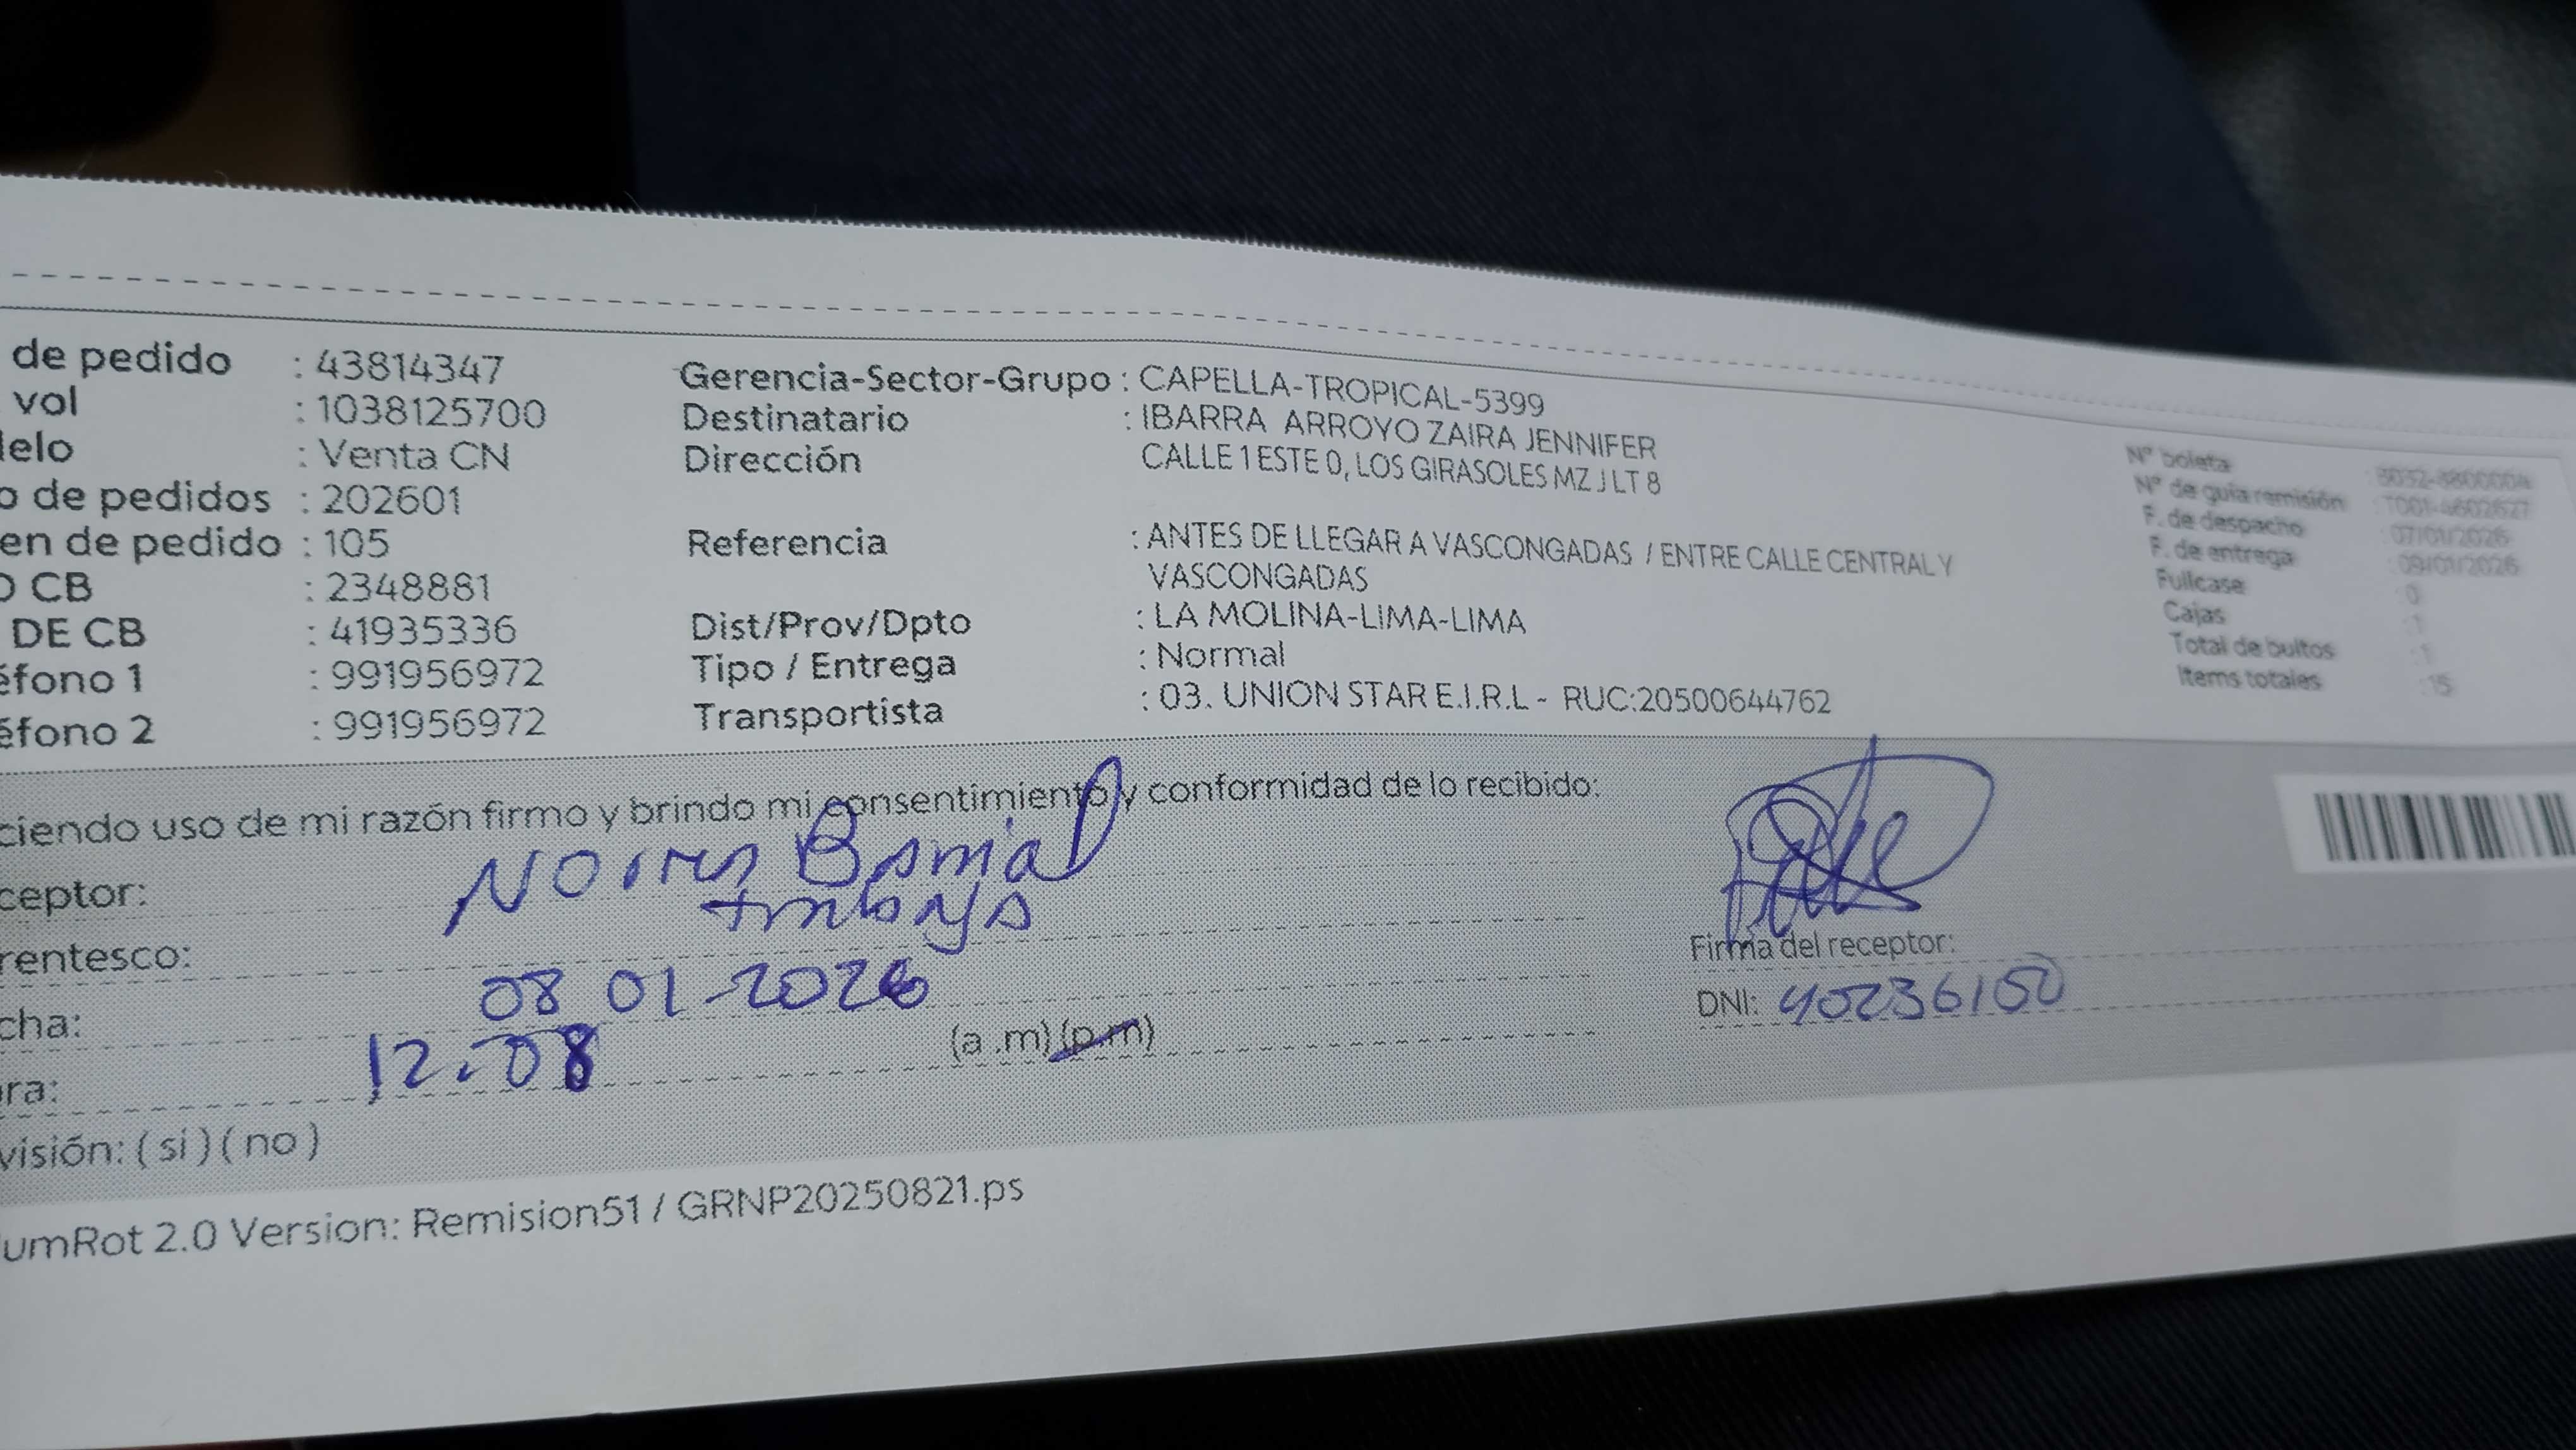 de pedido : 43814347
vol : 1038125700
delo : Venta CN
o de pedidos : 202601
en de pedido : 105
O CB : 2348881
DE CB : 41935336
éfono 1 : 991956972
éfono 2 : 991956972
Gerencia-Sector-Grupo : CAPELLA-TROPICAL-5399
Destinatario : IBARRA ARROYO ZAIRA JENNIFER
Dirección CALLE 1 ESTE 0, LOS GIRASOLES MZ J LT 8
Referencia : ANTES DE LLEGAR A VASCONGADAS / ENTRE CALLE CENTRAL Y
VASCONGADAS
Dist/Prov/Dpto : LA MOLINA-LIMA-LIMA
Tipo / Entrega : Normal
Transportista : 03. UNION STAR E.I.R.L - RUC:20500644762
N° boleta
N° de guía remisión : T001-4602627
F. de despacho : 07/01/2026
F. de entrega : 09/01/2026
Fullcase : 0
Cajas : 1
Total de bultos : 1
Items totales : 15
ciendo uso de mi razón firmo y brindo mi consentimiento y conformidad de lo recibido:
ceptor:
rentesco: trabaja
cha: 08 01-2026
ra: 12.08 (a .m) (p.m)
visión: ( si ) ( no )
Firma del receptor:
DNI: 40236150
umRot 2.0 Version: Remision51 / GRNP20250821.ps